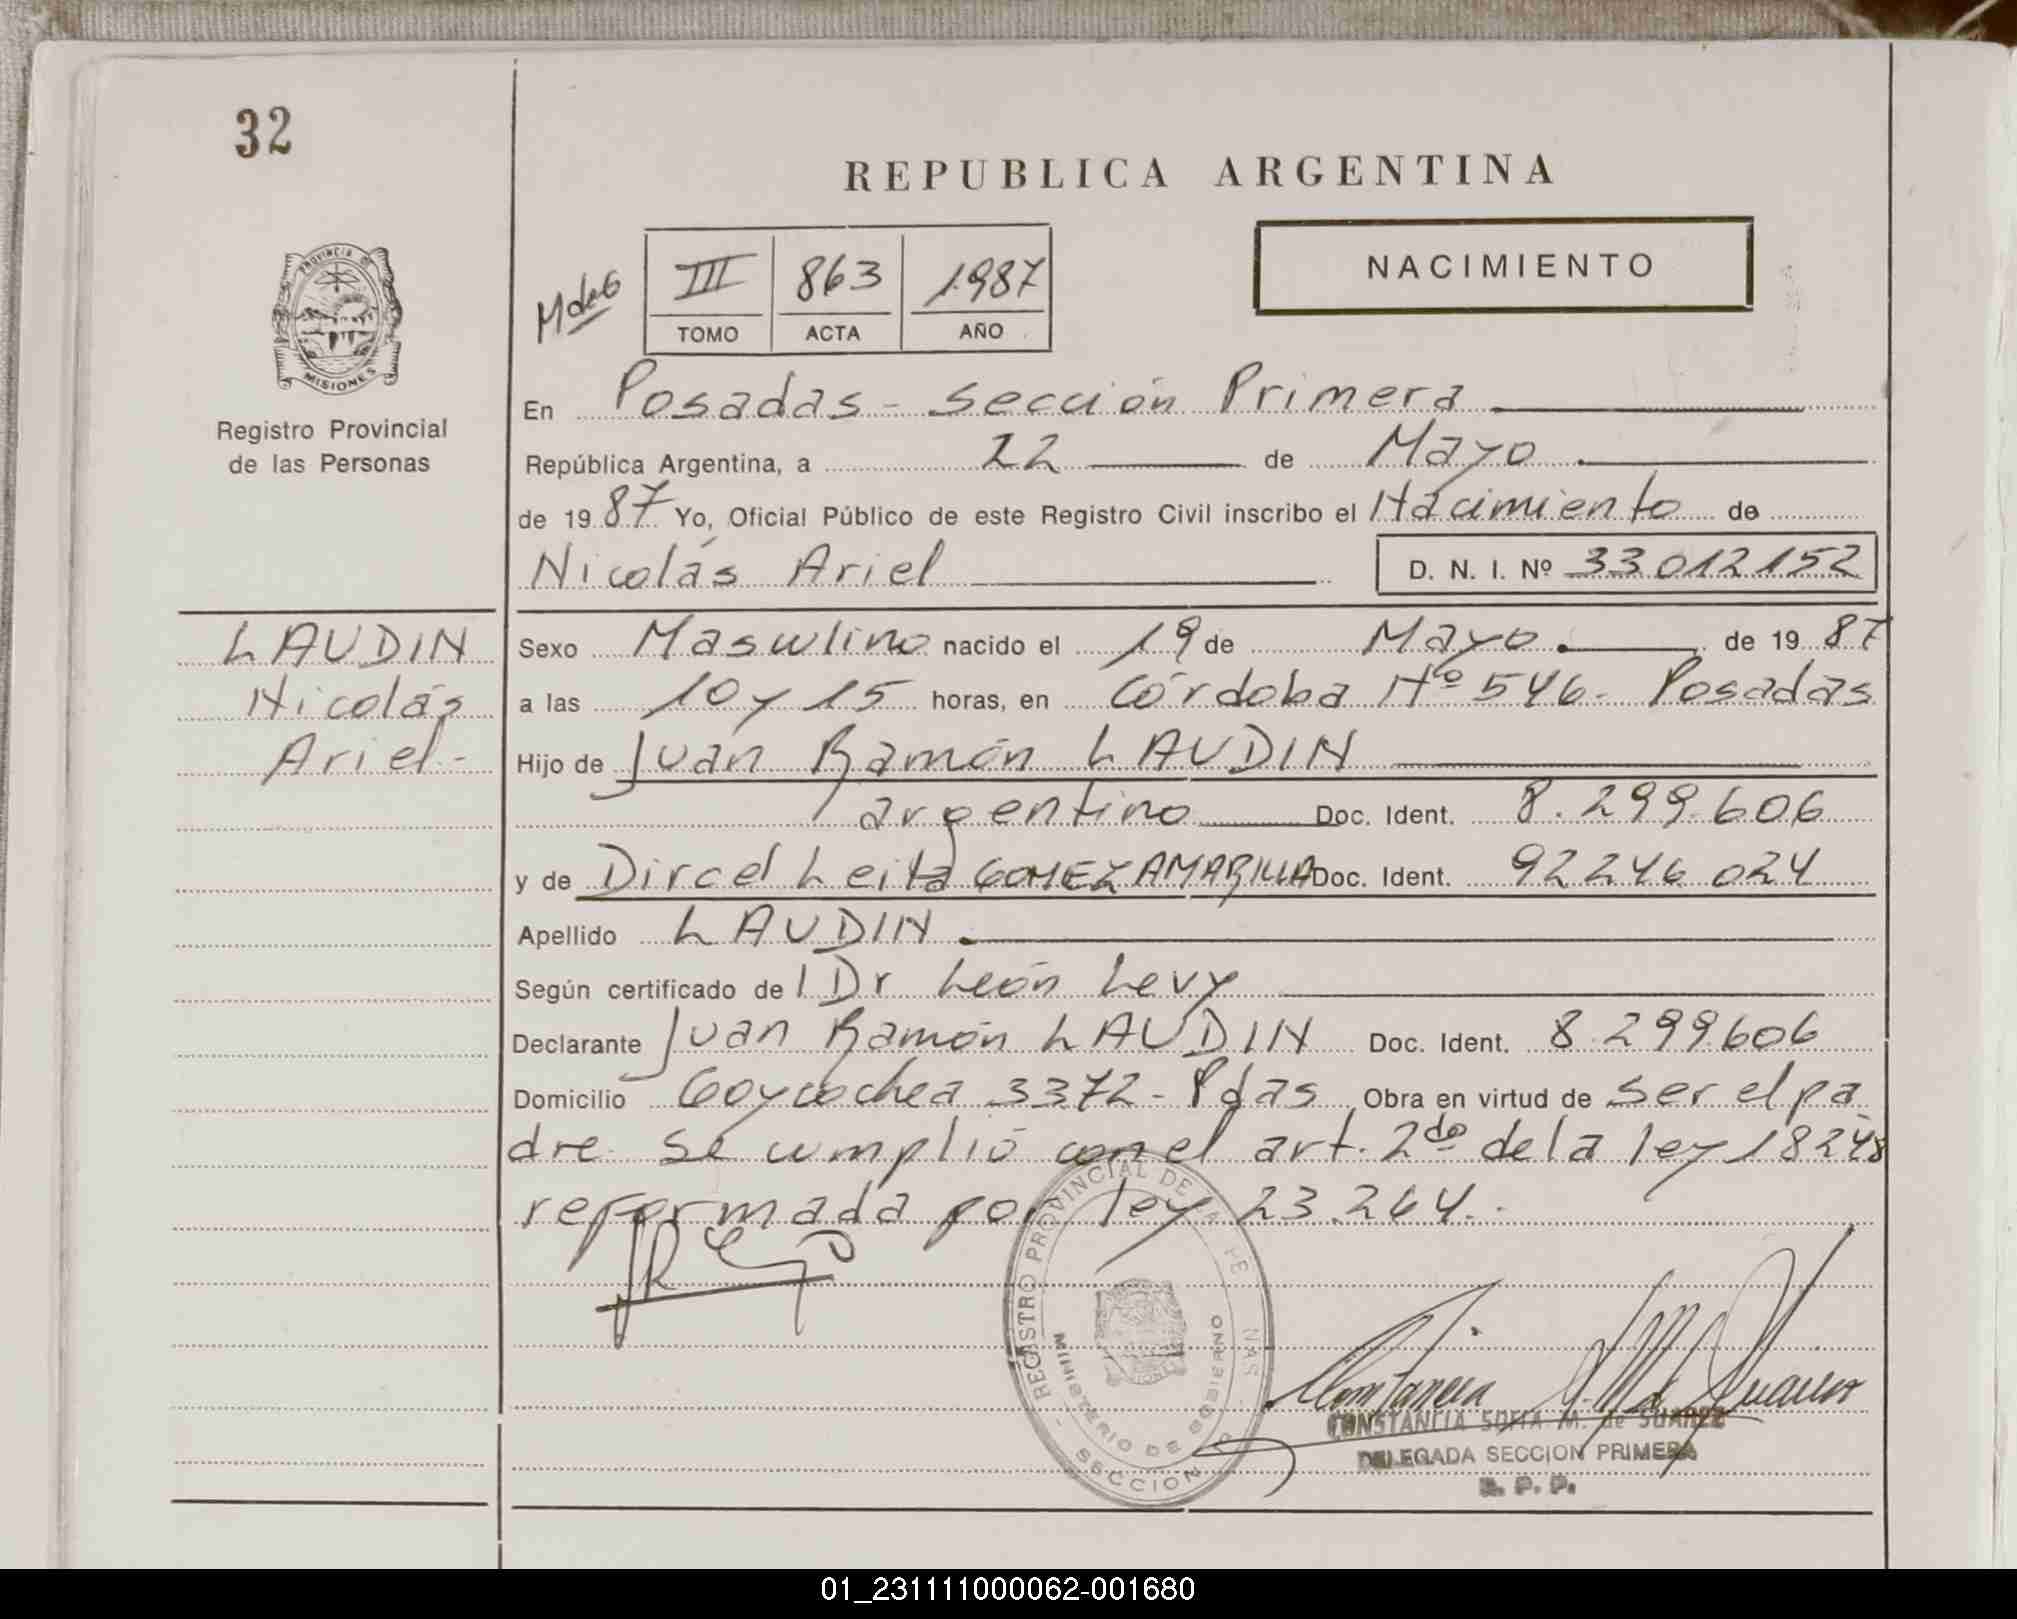 32
REPUBLICA ARGENTINA
NACIMIENTO
III 863 1987
TOMO ACTA AÑO
PROVINCIA DE
MISIONES
Registro Provincial
de las Personas
En Posadas - Sección Primera
República Argentina, a 22 de Mayo
de 1987 Yo, Oficial Público de este Registro Civil inscribo el Nacimiento de
Nicolás Ariel D. N. I. Nº 33012152
LAUDIN
Nicolás
Ariel-
Sexo Masculino nacido el 19 de Mayo de 1987
a las 10 y 15 horas, en Córdoba Nº 546- Posadas
Hijo de Juan Ramón LAUDIN
argentino Doc. Ident. 8.299.606
y de Dircel Leita GOMEZ AMARILLA Doc. Ident. 92246024
Apellido LAUDIN
Según certificado del Dr León Levy
Declarante Juan Ramón LAUDIN Doc. Ident. 8.299606
Domicilio Goycochea 3372- Pdas Obra en virtud de ser el pa
dre. Se cumplió con el art. 2do de la ley 18248
reformada por ley 23.264.
REGISTRO PROVINCIAL DE
MINISTERIO DE GOBIERNO
SECCION
CONSTANCIA SOFIA M. de SUAREZ
DELEGADA SECCION PRIMERA
R. P. P.
01_231111000062-001680